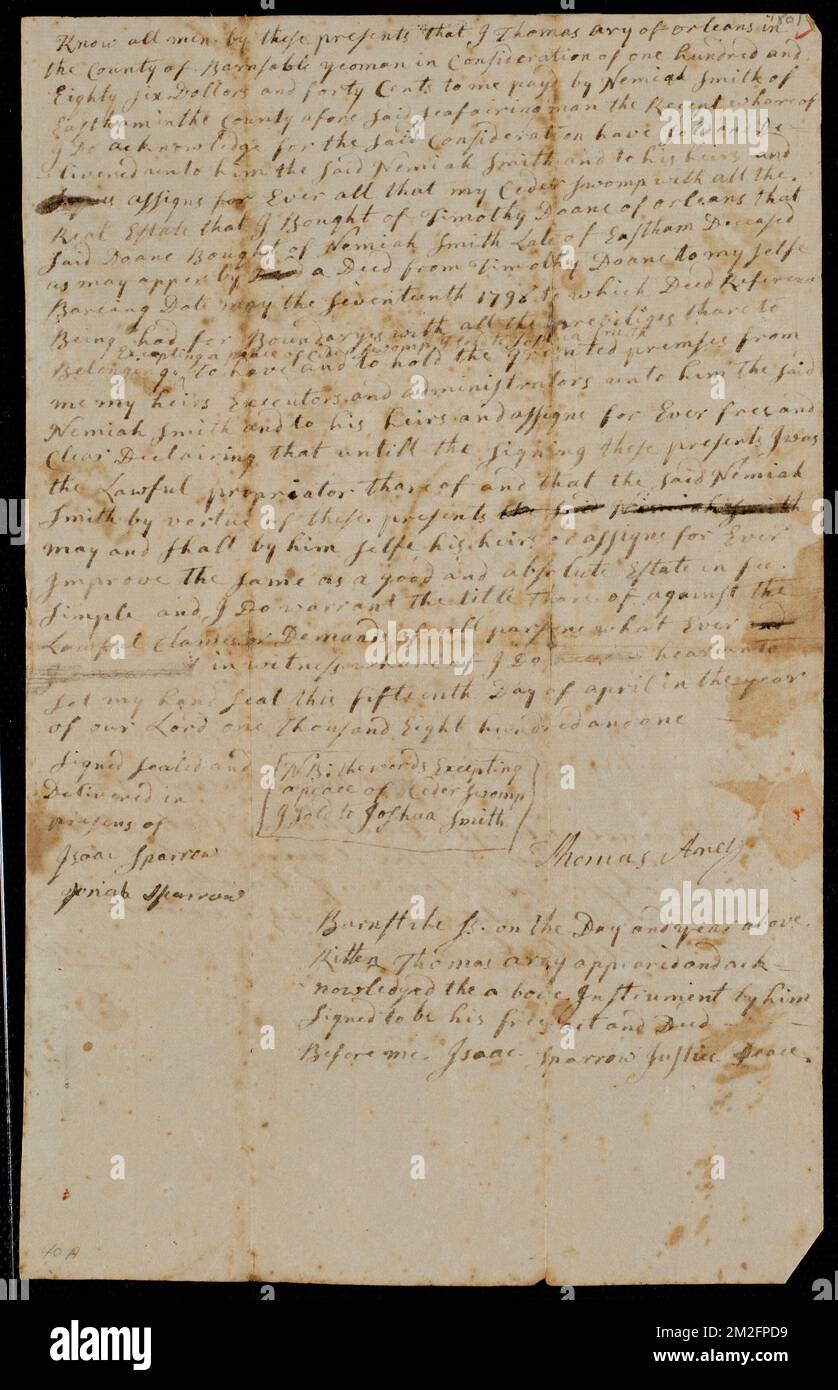 1801
Know all men by these presents that I Thomas Ary of orleans in
the County of Barnstable yeoman in Consideration of one hundred and
Eighty six Dollors and forty Cents to me payd by Nemiah Smith of
Eastham in the County afore said seafairing man the Recept whare of
I Do acknowledge for the said Consideration have
livered unto him the said Nemiah Smith and to his heirs and
assigns for Ever all that my Ceder swomp with all the
Real Estate that I Bought of Timothy Doane of orleans that
said Doane Bought of Nemiah Smith Late of Eastham Deceased
as may apper by a Deed from Timothy Doane to my selfe
Bareing Date may the seventeenth 179 to which Deed Referance
Being had for Boundaryes with all the preveliges thare to
Excepting a peace of Ceder swomp I sold to Joshua Smith
Belonging to have and to hold the Grented premises from
me my heirs Executors and administrators unto him the said
Nemiah Smith and to his heirs and assigns for Ever free and
Clear Declairing that untill the signing these presents I was
the Lawful propriator thare of and that the said Nemiah
Smith by vertue of these presents the said Nemiah Smith
may and shall by him selfe his heirs or assigns for Ever
Improve the same as a good and absolute Estate in fee
simple and I Do warrant the title thare of against the
Lawful Clames or Demands of all parsons what Ever and
in witness whare of I Do hear unto
set my hand seal this fifteenth Day of april in the year
of our Lord one thousand Eight hundred and one
signed sealed and
Delivered in
presens of
Isaac Sparrow
Josiah Sparrow
NB: the words Excepting
a peace of Ceder swomp
I sold to Joshua Smith
Thomas Arey
Barnstable Ss. on the Day and year above
Ritten Thomas ary appiored and ack
nowledged the a bove Instrument by him
signed to be his free act and Deed
Before me Isaac Sparrow Justice Peace
40 A
alamy
Image ID: 2M2FPD9
www.alamy.com